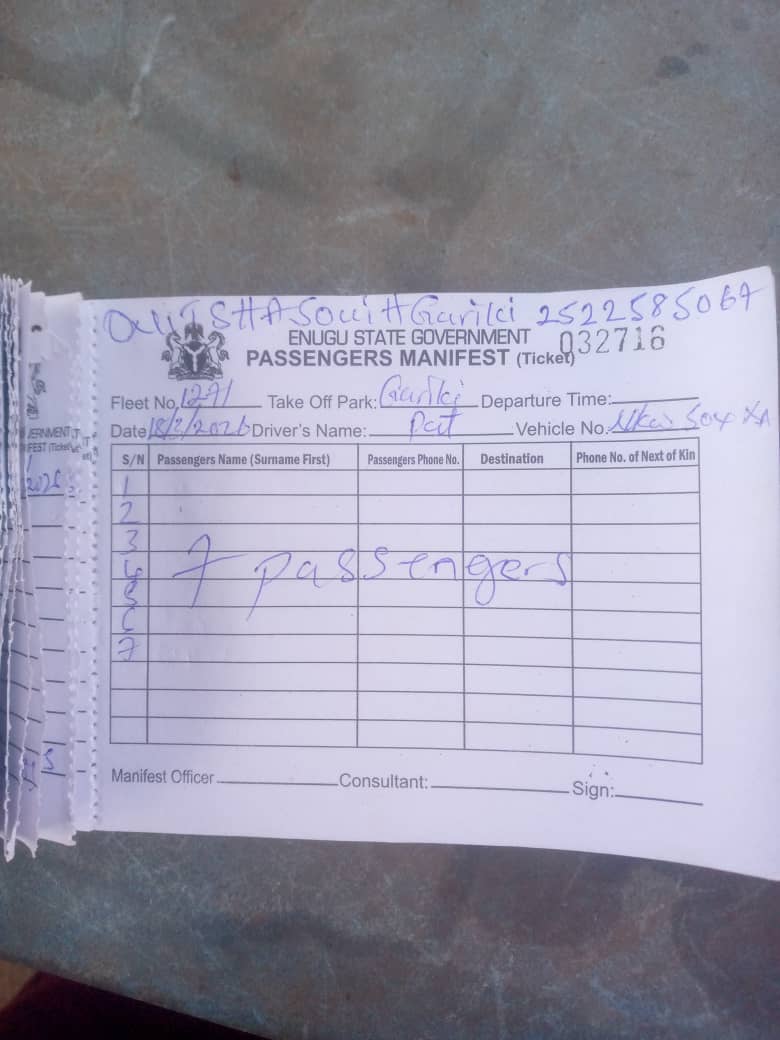 ONITSHA South Gariki 2522585067
ENUGU STATE GOVERNMENT 032716
PASSENGERS MANIFEST (Ticket)
Fleet No. 1291 Take Off Park: Gariki Departure Time:
Date 18/2/2026 Driver's Name: Pat Vehicle No. 504 XA
S/N Passengers Name (Surname First) Passengers Phone No. Destination Phone No. of Next of Kin
1
2
3
4
5
6
7
7 passengers
Manifest Officer Consultant: Sign: